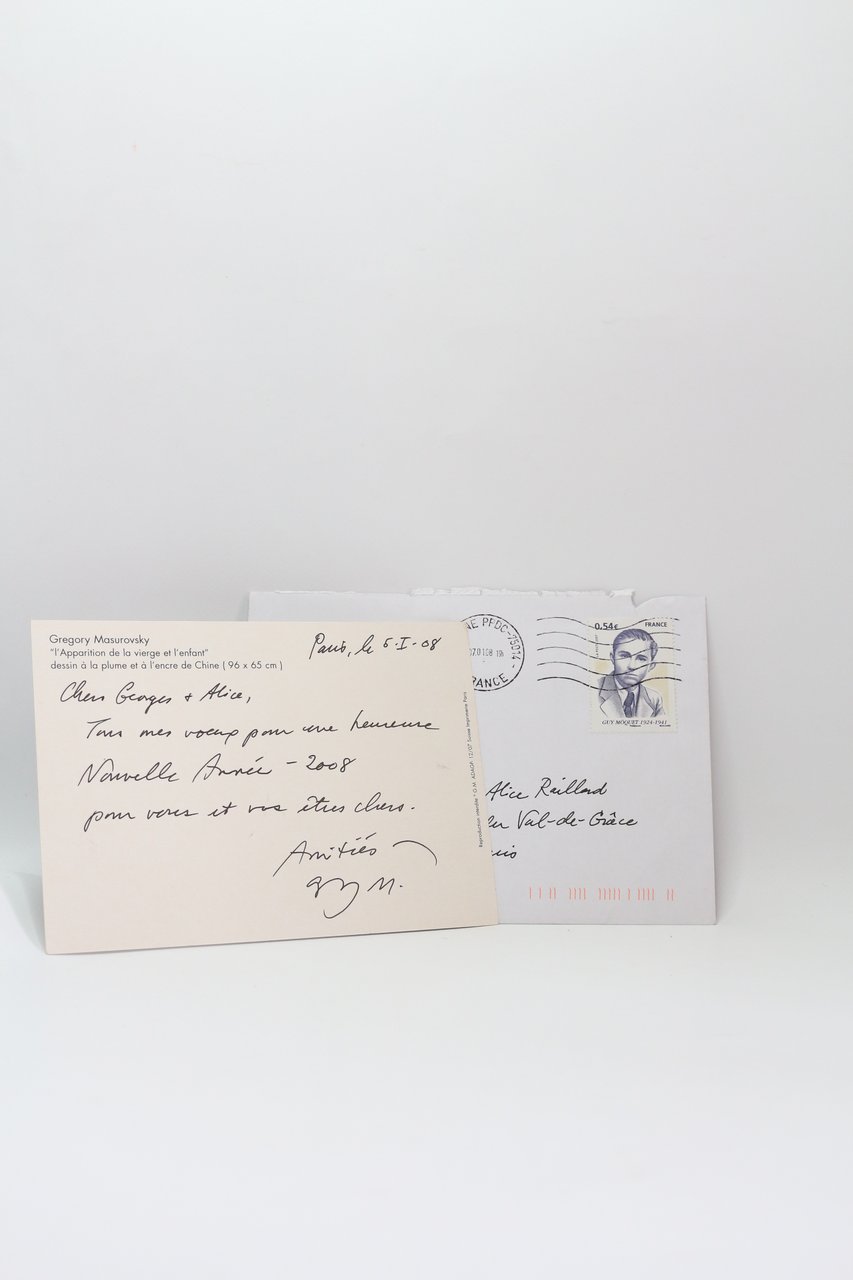 Gregory Masurovsky
"l'Apparition de la vierge et l'enfant"
dessin à la plume et à l'encre de Chine ( 96 x 65 cm )
Paris, le 6-I-08
Chers Georges + Alice,
Tous mes voeux pour une heureuse
Nouvelle Année - 2008
pour vous et vos êtres chers.
Amitiés
M.
Reproduction interdite © G.M. ADAGP. 12/07 Suisse Imprimerie Paris
NE PFDC-75014
FRANCE
0,54€ FRANCE
GUY MÔQUET 1924-1941
Alice Raillard
Val-de-Grâce